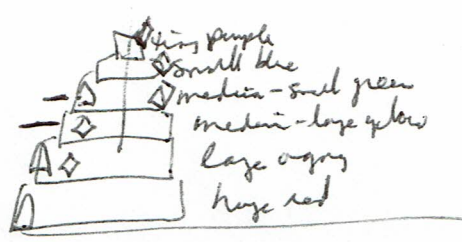 tiny purple
small blue
medium-small green
medium-large yellow
large orange
huge red